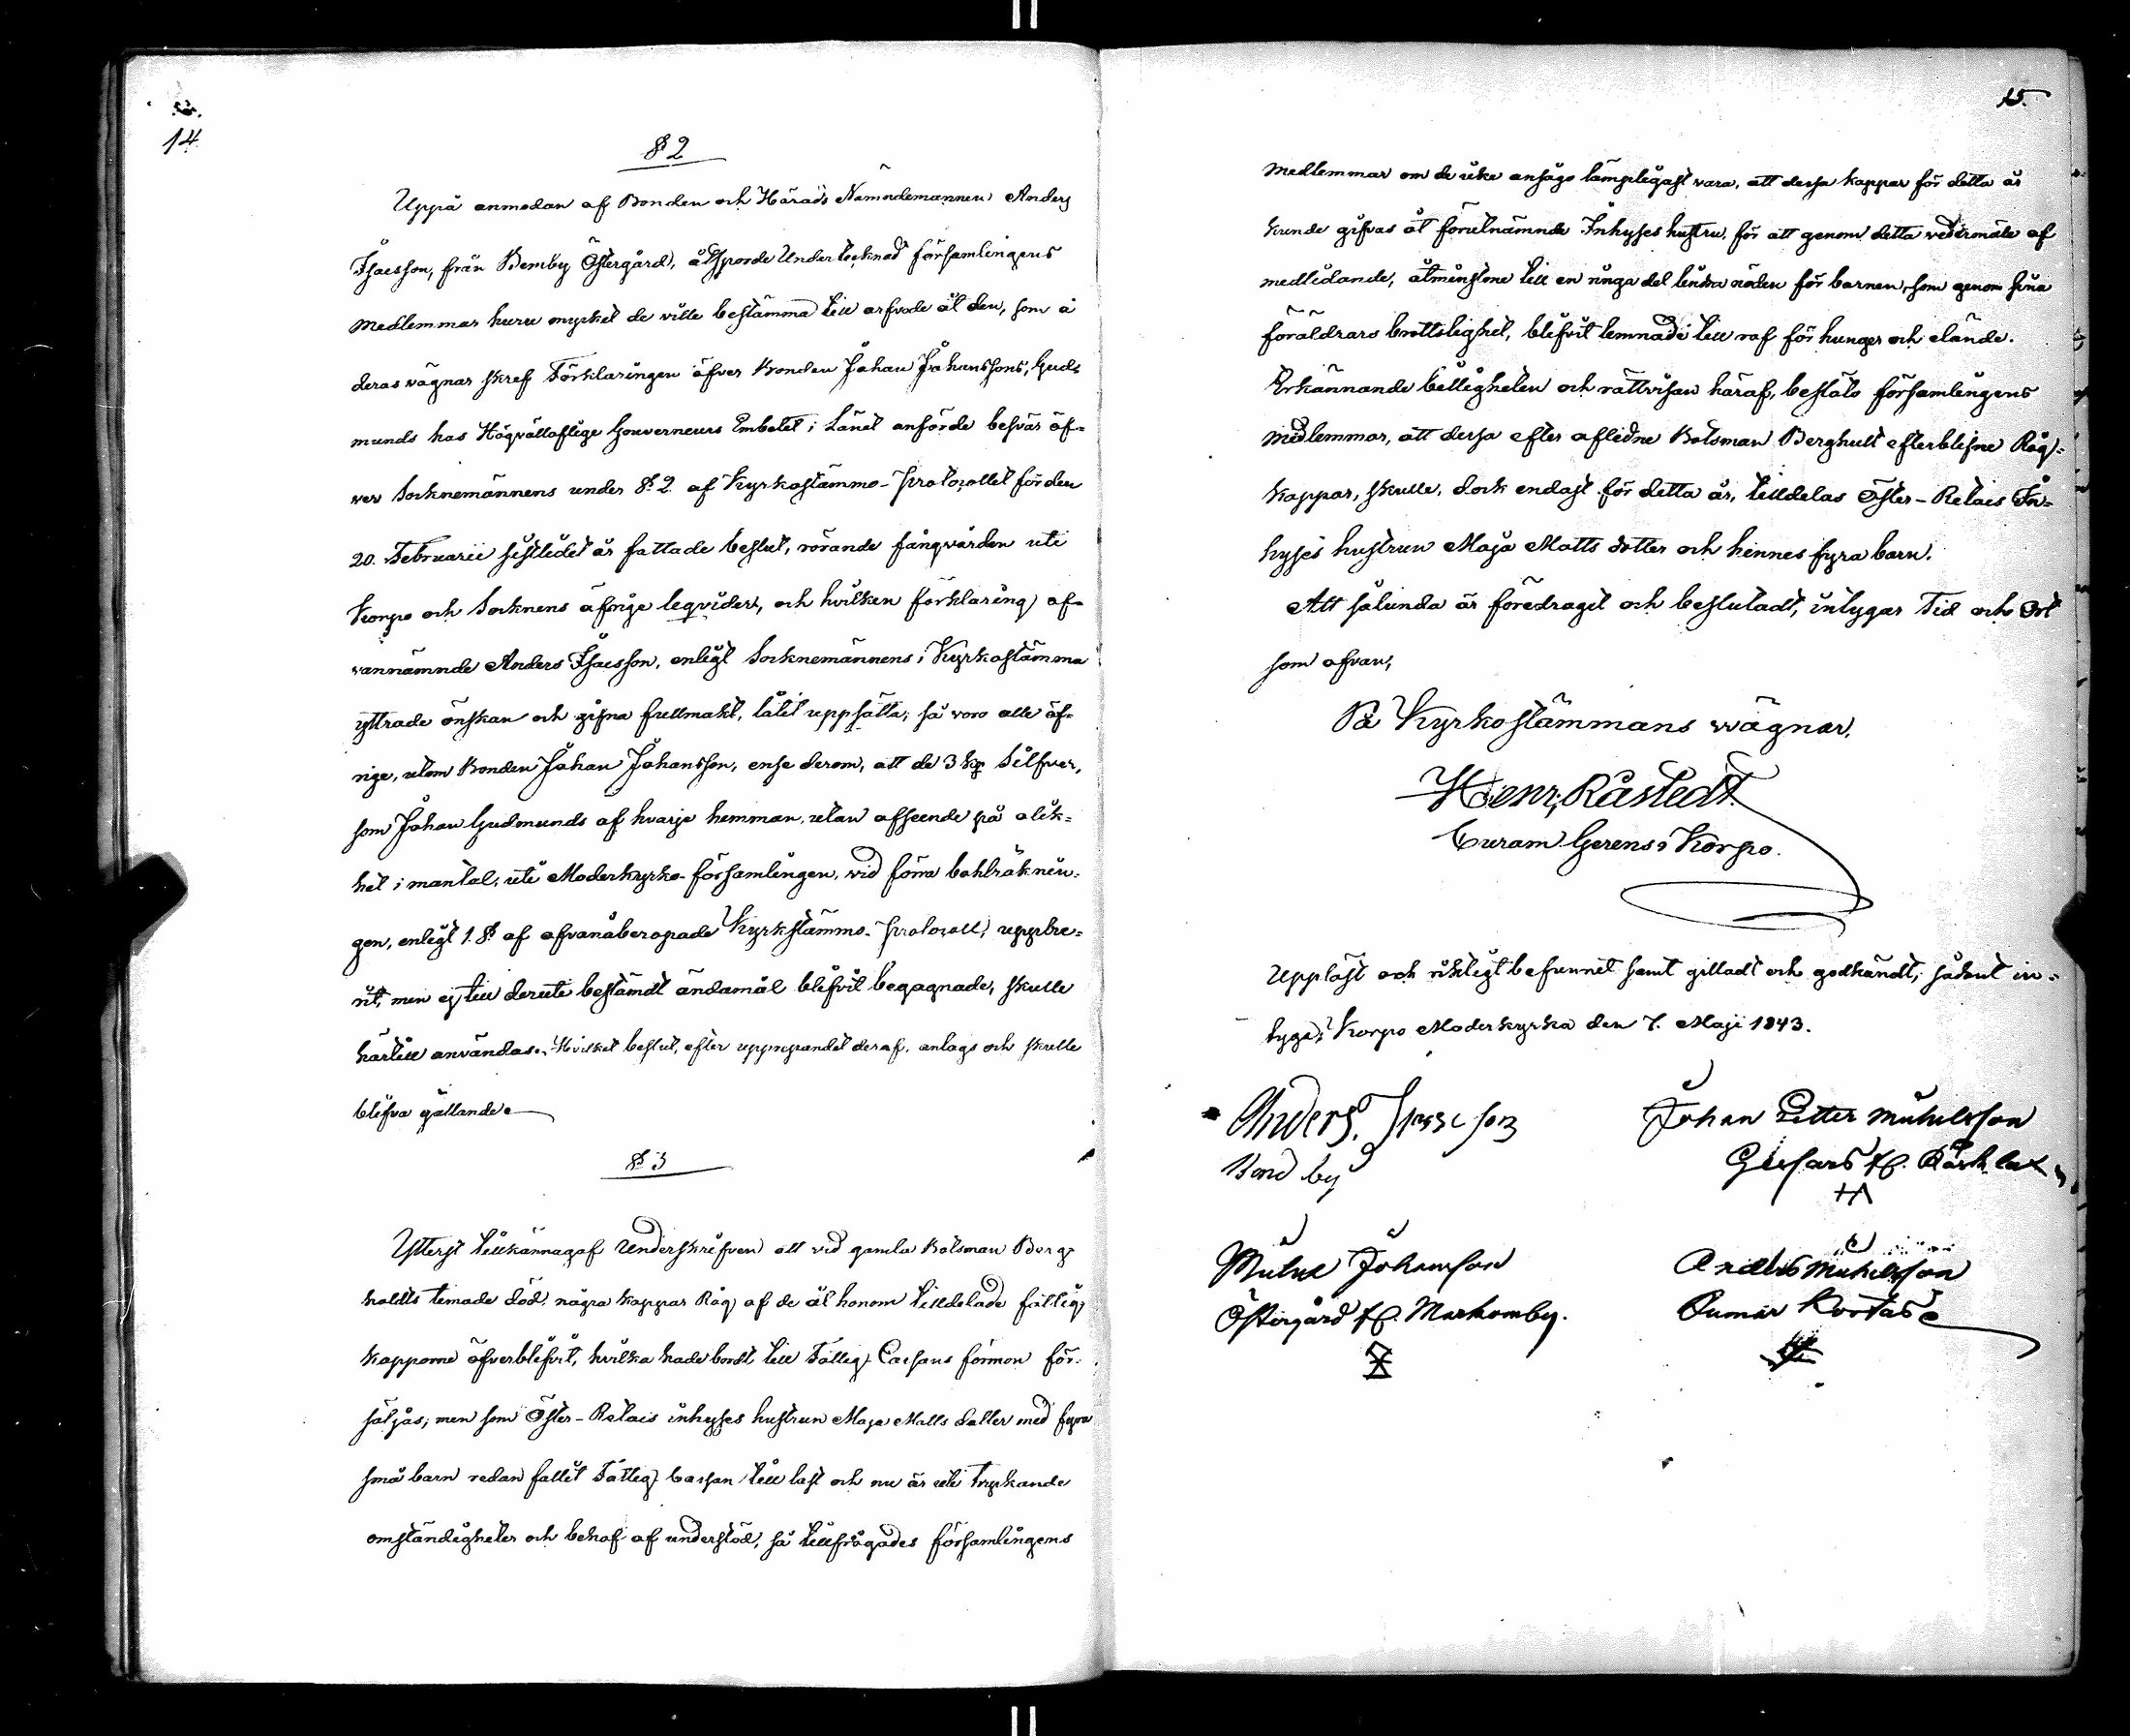 14.
§ 2
Uppå anmodan af Bonden och Härads Nämndemannen Anders
Isacsson, från Bemby Östergård, åtsporde Undertecknad församlingens
medlemmar huru mycket de ville bestämma till arfvode åt den, som å
deras vägnar skref Förklaringen öfver Bonden Johan Johanssons, Gud-
munds hos Högvälloflige Gouverneurs Embetet i Länet anförde besvär öf-
ver Socknemännens under § 2 af Kyrkostämmo-Protocollet för den
20. Februarii sistledet år fattade beslut, rörande fångvården uti
Korpo och Socknens öfrige legvider, och hvilken förklaring of-
vannämnde Anders Isacsson, enligt Socknemännens i Kyrkostämma
yttrade önskan och gifna fullmakt, låtit uppsätta; så voro alle öf-
rige, utom Bonden Johan Johansson, ense derom, att de 3 kp Silfver,
som Johan Gudmunds af hvarje hemman, utan afseende på olik-
het i mantal, uti Moderkyrko-församlingen, vid förra bohlräknin-
gen, enligt 1. § af ofvanåberopade Kyrkstämmo-Protocoll, uppbu-
rit, men ej till deruti bestämdt ändamål blifvit begagnade, skulle
härtill användas. Hvilket beslut, efter upprepandet deraf, antogs och skulle
blifva gällande.
§ 3
Ytterst tillkännagaf Underskrifven att vid gamla Båtsman Berg-
hultts timade död, några kappar Råg af de åt honom tilldelade fattig-
kapporne öfverblifvit, hvilka hade bordt till Fattig-Cassans förmon för-
säljas; men som Öster-Retais inhyses hustrun Maja Matts dotter med fyra
små barn redan fallit Fattig-cassan till last och nu är uti tryckande
omständigheter och behof af understöd, så tillfrågades församlingens
15.
medlemmar om de icke ansågo lämpligast vara, att dessa kappar för detta år
kunde gifvas åt förutnämnde Inhyses hustru, för att genom detta vedermäle af
medlidande, åtminstone till en ringa del lindra nöden för barnen, som genom sina
föräldrars brottslighet, blifvit lemnade till rof för hunger och elände.
Erkännande billigheten och rättvisan häraf, beslöto församlingens
medlemmar, att dessa efter aflidne Båtsman Berghult efterblifne Råg-
kappar, skulle, dock endast för detta år, tilldelas Öster-Retais In-
hyses hustrun Maja Matts dotter och hennes fyra barn.
Att sålunda är föredraget och beslutadt, intygar Tid och Ort
som ofvan,
På Kyrkostämmans vägnar,
Henr. Råstedt
Curam Gerens i Korpo.
Uppläst och riktigt befunnit samt gilladt och godkändt; sådant in-
tyga; Korpo Moderkyrka den 7. Maji 1843.
Anders Isacsson
Johan Petter Mickelsson
Bemby
Mickel Johansson
Anders Mickelsson
Östergård fr. Markomby.